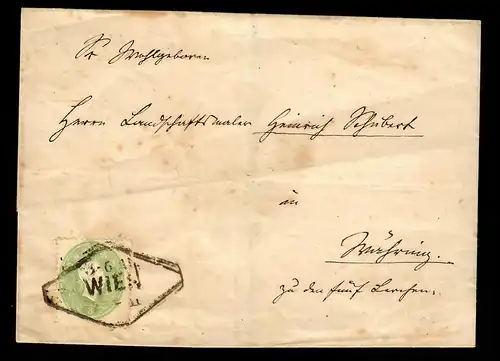 Sr Wohlgeboren
Herrn Landschaftsmaler Heinrich Schubert
in
Währing.
zu den fünf Lerchen.
WIEN